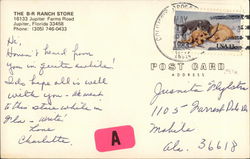 THE B-R RANCH STORE
16133 Jupiter Farms Road
Jupiter, Florida 33458
Phone: (305) 746-0433
Hi,
Haven't heard from
you in quite awhile!
I do hope all is well
with you. At
this store while in
Fla - Write!
Love
Charlotte
A
POST CARD
ADDRESS
Jeanette
1105 Forrest Dale Dr.
Mobile
Ala. 36618